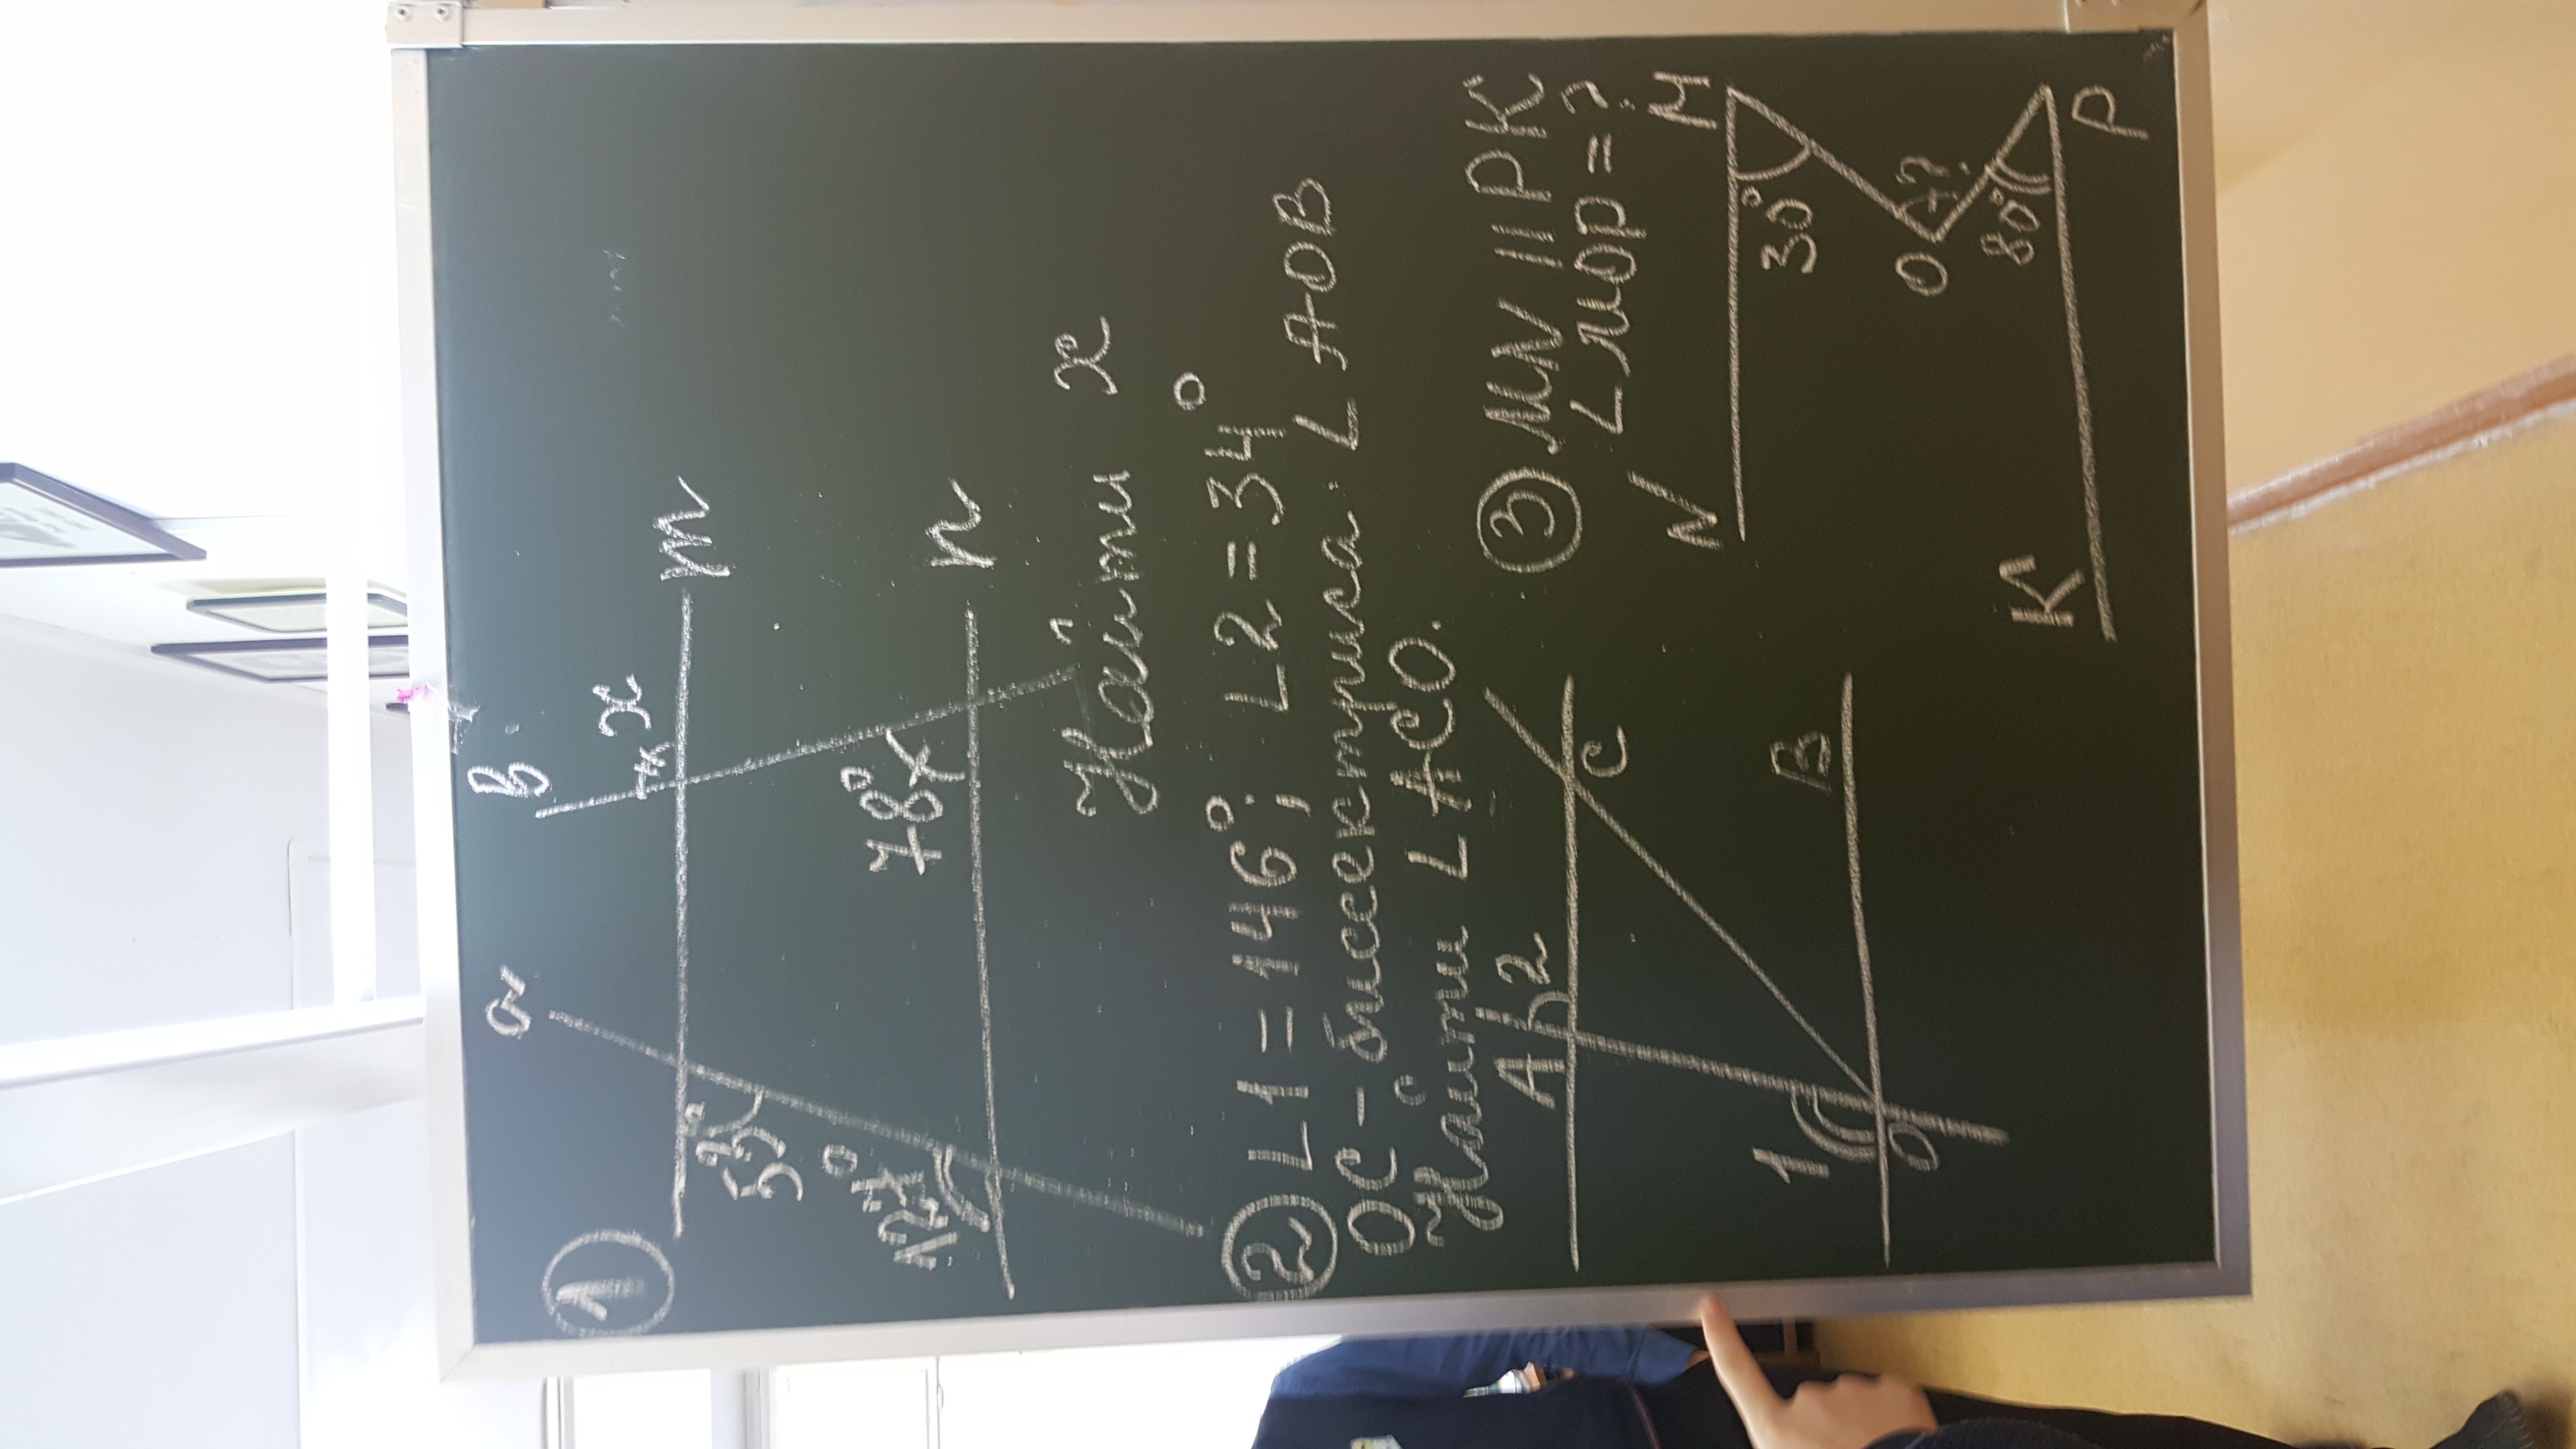 1
a
в
x
m
53°
127°
78°
n
Найти x
2 L1=146°; L2=34°
OC - биссектриса L AOB
Найти L ACO.
A
2
C
1
B
O
3 MN || PK
L MOP = ?
N
M
30°
O
?
80°
K
P